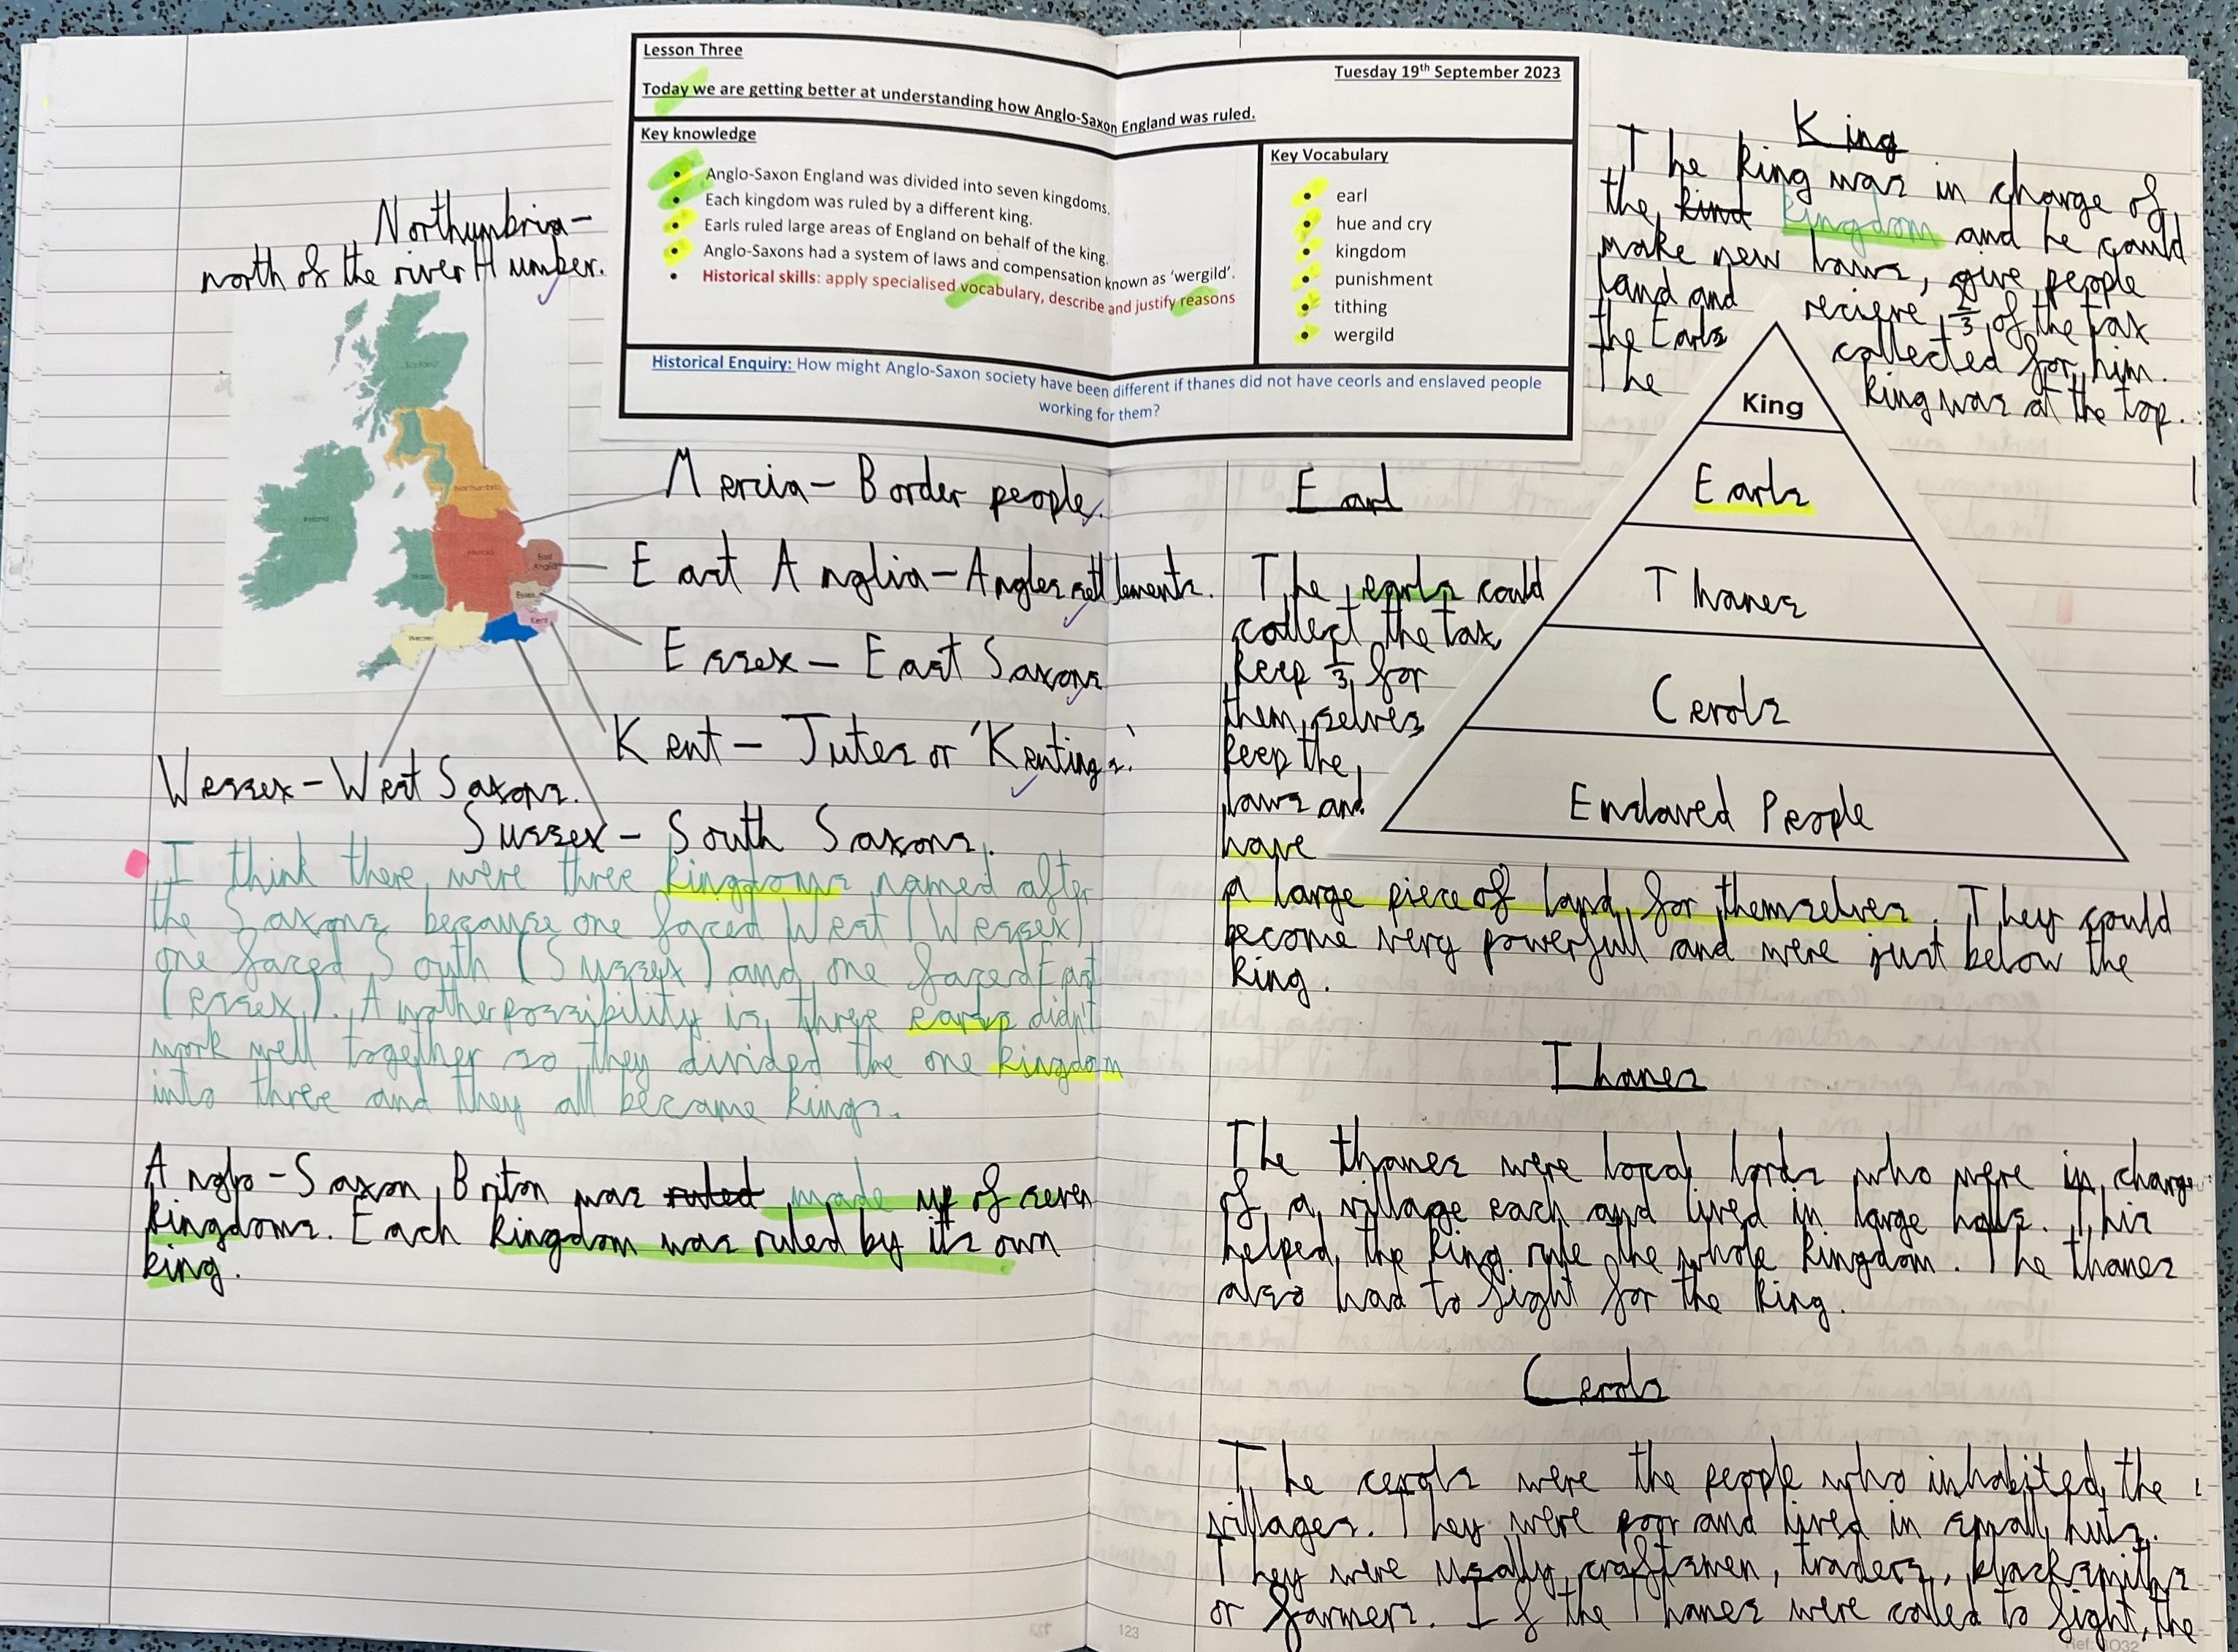 Lesson Three
Tuesday 19th September 2023
Today we are getting better at understanding how Anglo-Saxon England was ruled.
Key knowledge
Anglo-Saxon England was divided into seven kingdoms.
Each kingdom was ruled by a different king.
Earls ruled large areas of England on behalf of the king.
Anglo-Saxons had a system of laws and compensation known as 'wergild'.
Historical skills: apply specialised vocabulary, describe and justify reasons
Key Vocabulary
earl
hue and cry
kingdom
punishment
tithing
wergild
Historical Enquiry: How might Anglo-Saxon society have been different if thanes did not have ceorls and enslaved people
working for them?
Northumbria-
north of the river Humber.
Scotland
Northumbria
Ireland
Mercia
East
Anglia
Wales
Essex
Kent
Wessex
Mercia - Border people.
East Anglia - Angles settlements.
Essex - East Saxons
Kent - Jutes or 'Kentings.'
Wessex - West Saxons.
Sussex - South Saxons.
I think there were three kingdoms named after
the Saxons because one faced West (Wessex)
one faced South (Sussex) and one faced East
(essex). Another possibility is three earls didn't
work well together so they divided the one kingdom
into three and they all became kings.
Anglo-Saxon Briton was ruled made up of seven
kingdoms. Each kingdom was ruled by its own
king.
King
The king was in charge of
the kind kingdom and he could
make new laws, give people
land and recieve 2/3 of the tax
the Earls collected for him.
The king was at the top.
King
Earls
Thanes
Cerols
Enslaved People
Earl
The earls could
collect the tax,
keep 1/3 for
themselves
keep the
laws and
have
a large piece of land for themselves. They could
become very powerfull and were just below the
king.
Thanes
The thanes were local lords who were in charge
of a village each and lived in large halls. This
helped the king rule the whole kingdom. The thanes
also had to fight for the king.
Cerols
The cerols were the people who inhabited the
villages. They were poor and lived in small huts.
They were usally craftsmen, traders, blacksmiths
or farmers. If the Thanes were called to fight, the
123